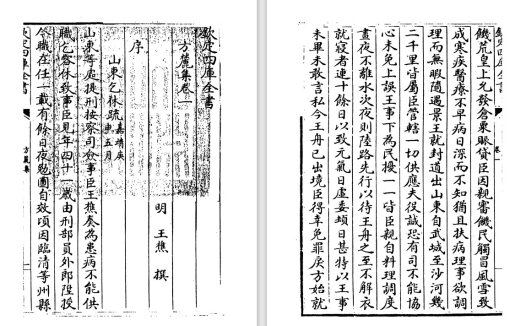 欽定四庫全書
方麓集卷一
明 王樵 撰
序
山東乞休疏 嘉靖庚申五月
山東等處提刑按察司僉事臣王樵奏為患病不能供
職乞容休致事臣見年四十一歲由刑部員外郎陞授
今職在任一載有餘日夜勉圖自效頃因臨清等州縣
欽定四庫全書
方麓集
饑荒皇上允發倉粟賑貸臣因親審饑民觸冒風雪致
成寒疾醫療不早病日深而不知猶且扶病理事欲調
理而無暇隨過景王就封道出山東自武城至沙河幾
二千里皆屬臣管轄一切供應夫役誠恐有司不能協
心未免上誤王事下為民擾一一皆臣親自料理調度
晝夜不離水次夜則陸路先行以待王舟之至不解衣
就寢者連十餘日以致元氣日虛委頓日甚特以王事
未畢未敢言私今王舟已出境臣得幸免罪戾方始就